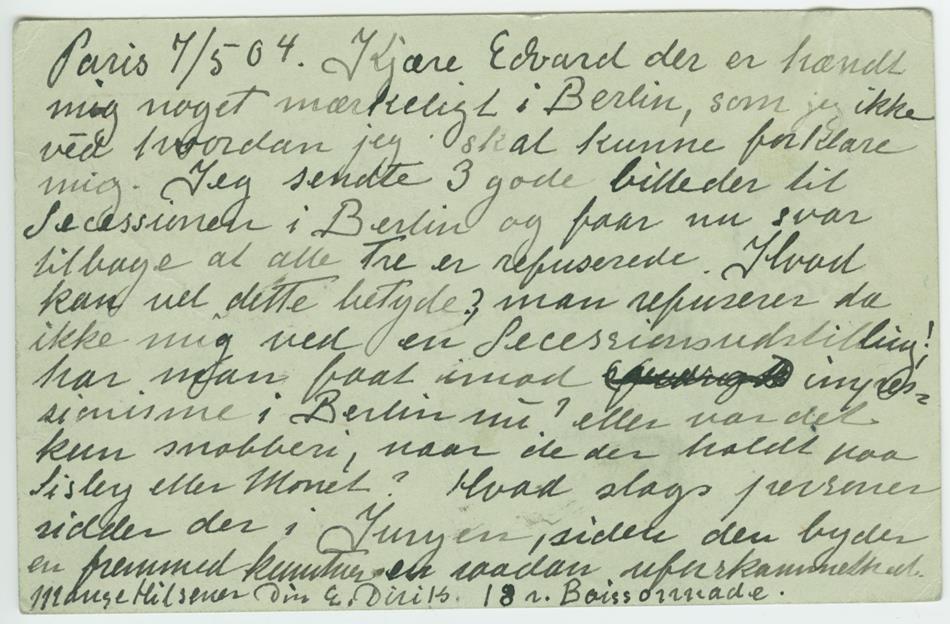 Paris 7/5 04. Kjære Edvard der er hændt
mig noget mærkeligt i Berlin, som jeg ikke
véd hvordan jeg skal kunne forklare
mig. Jeg sendte 3 gode billeder til
Secessionen i Berlin og faar nu svar
tilbage at alle tre er refuserede. Hvad
kan vel dette betyde? man refuserer da
ikke mig ved en Secessionsudstilling!
har man faat imod impres=
sionisme i Berlin nu? eller var det
kun snobberi, naar de der holdt paa
Sisley eller Monet? Hvad slags personer
sidder der i Juryen, siden den byder
en fremmed kunstner en saadan uforskammethed.
Mange Hilsener Din E. Diriks. 18 r. Boissonnade.